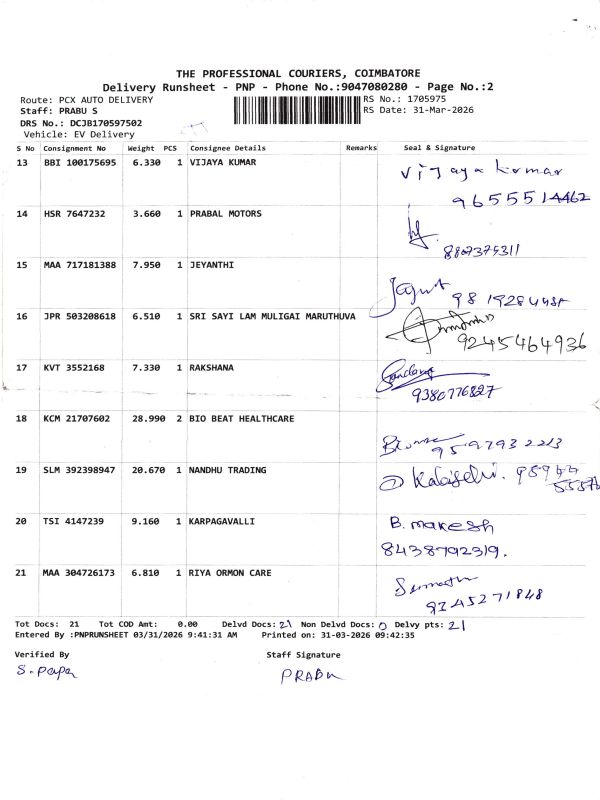 THE PROFESSIONAL COURIERS, COIMBATORE
Delivery Runsheet - PNP - Phone No.:9047080280 - Page No.:2
Route: PCX AUTO DELIVERY
RS No.: 1705975
Staff: PRABU S
RS Date: 31-Mar-2026
DRS No.: DCJB170597502
Vehicle: EV Delivery
S No Consignment No Weight PCS Consignee Details Remarks Seal & Signature
13 BBI 100175695 6.330 1 VIJAYA KUMAR Vijaya kumar
9655514462
14 HSR 7647232 3.660 1 PRABAL MOTORS
15 MAA 717181388 7.950 1 JEYANTHI
16 JPR 503208618 6.510 1 SRI SAYI LAM MULIGAI MARUTHUVA
9245464936
17 KVT 3552168 7.330 1 RAKSHANA
9380776827
18 KCM 21707602 28.990 2 BIO BEAT HEALTHCARE
9597932213
19 SLM 392398947 20.670 1 NANDHU TRADING
20 TSI 4147239 9.160 1 KARPAGAVALLI B. makesh
8438792319.
21 MAA 304726173 6.810 1 RIYA ORMON CARE
9245271848
Tot Docs: 21 Tot COD Amt: 0.00 Delvd Docs: 21 Non Delvd Docs: 0 Delvy pts: 21
Entered By :PNPRUNSHEET 03/31/2026 9:41:31 AM Printed on: 31-03-2026 09:42:35
Verified By Staff Signature
S. Papa PRABU